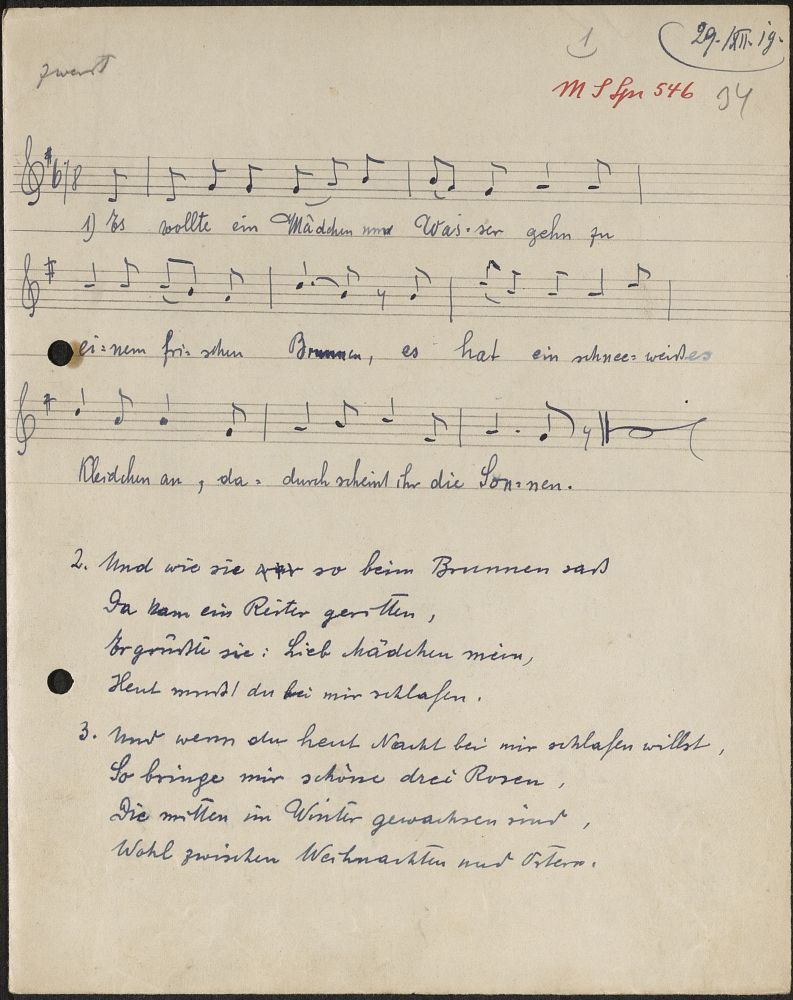 1
29./XII. ig.
zwent
M S Spr 546 94
6/8
1) Es wollte ein Mädchen und Was-ser gehn zu
ei=nem fri=schen Brunnen, es hat ein schnee=weißes
Kleidchen an, da= durch scheint ihr die Son=nen.
2. Und wie sie so beim Brunnen saß
Da kam ein Reiter geritten,
Er grüßte sie: Lieb Mädchen mein,
Heut mußt du bei mir schlafen.
3. Und wenn du heut Nacht bei mir schlafen willst,
So bringe mir schöne drei Rosen,
Die mitten im Winter gewachsen sind,
Wohl zwischen Weihnachten und Ostern.